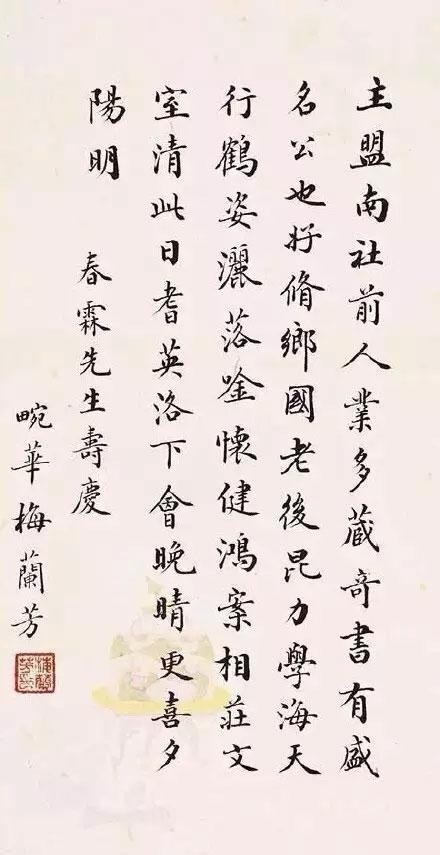 主盟南社前人業多蔵奇書有盛
名公也好脩鄉國老後昆力學海天
行鶴姿灑落唫懷健鴻案相莊文
室清此日耆英洛下會晚晴更喜夕
陽明
春霖先生壽慶
畹華梅蘭芳